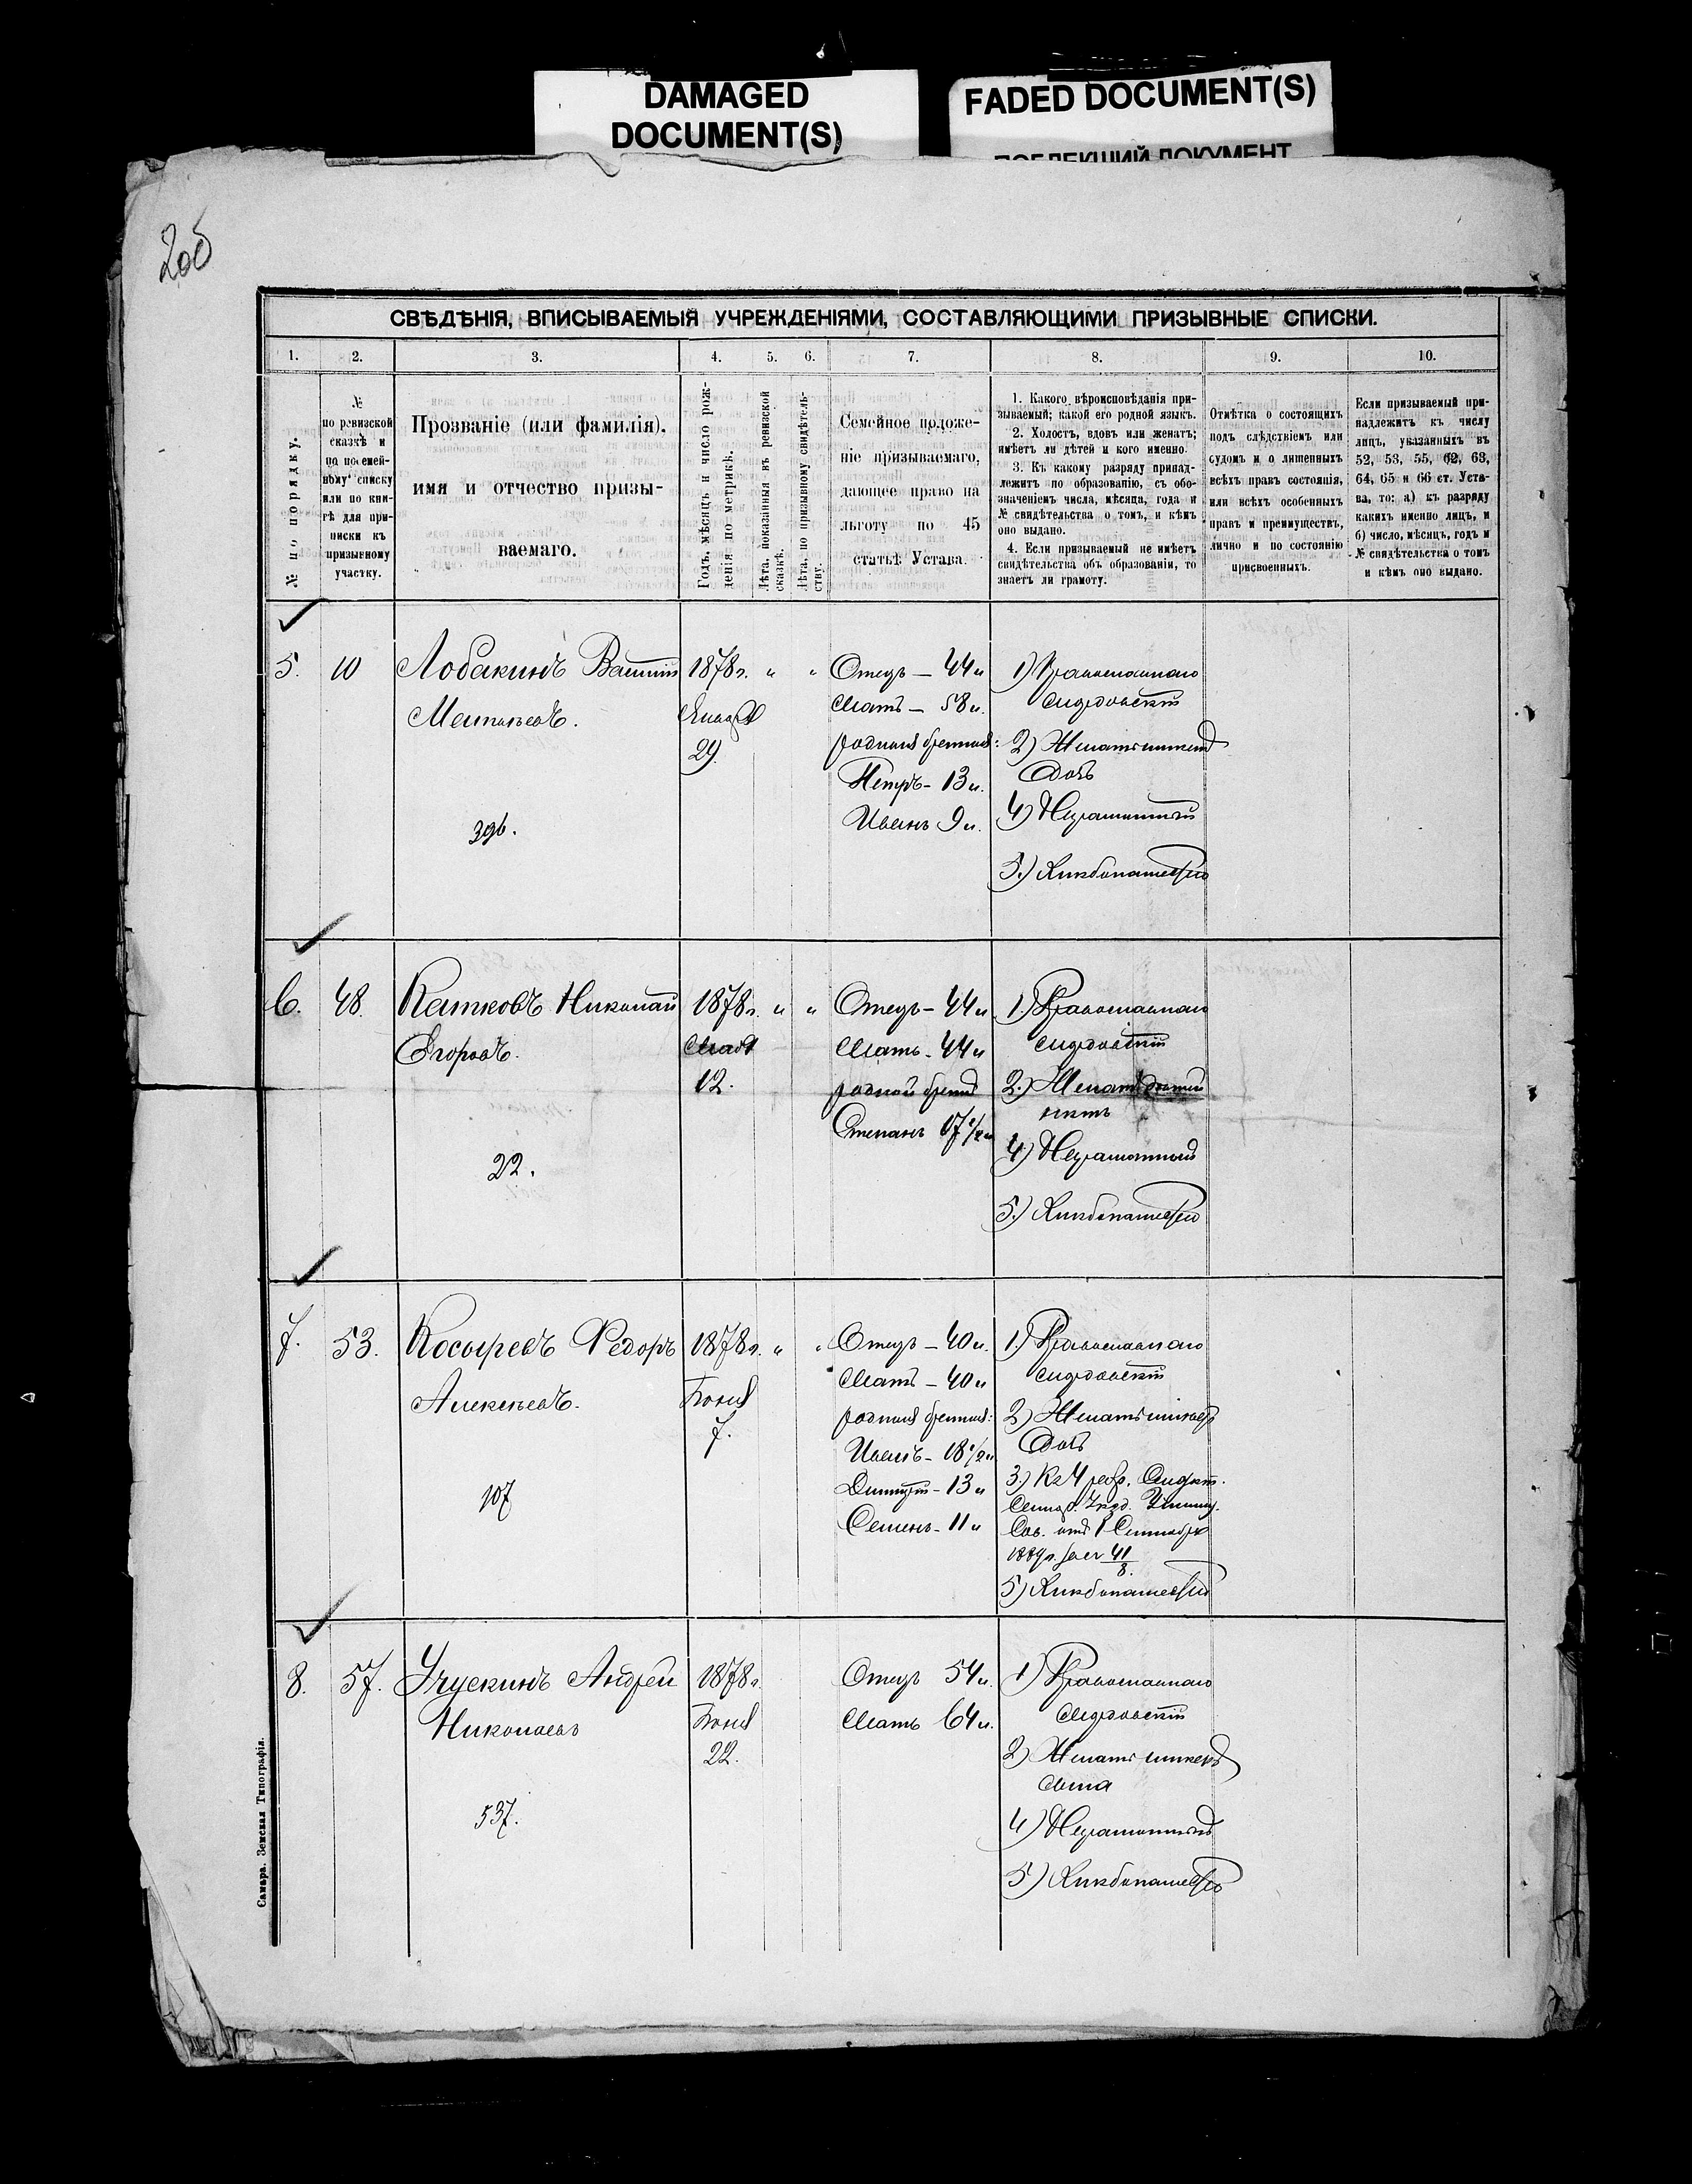 DAMAGED
DOCUMENT(S)
FADED DOCUMENT(S)
205
СВѢДѢНІЯ, ВПИСЫВАЕМЫЯ УЧРЕЖДЕНІЯМИ, СОСТАВЛЯЮЩИМИ ПРИЗЫВНЫЕ СПИСКИ.
1.
2.
3.
4.
5.
6.
7.
8.
9.
10.
№ по порядку.
№
по ревизской
сказкѣ и
по посемей-
ному списку
или по кни-
гѣ для при-
писки къ
призывному
участку.
Прозваніе (или фамилія),
имя и отчество призы-
ваемаго.
Годъ, мѣсяцъ и число рож-
денія по метрикѣ.
Лѣта, показанныя въ ревизской
сказкѣ.
Лѣта, по призывному свидѣтель-
ству.
Семейное положе-
ніе призываемаго,
дающее право на
льготу по 45
статьѣ Устава.
1. Какого вѣроисповѣданія при-
зываемый; какой его родной языкъ.
2. Холостъ, вдовъ или женатъ;
имѣетъ ли дѣтей и кого именно.
3. Къ какому разряду принад-
лежитъ по образованію, съ обо-
значеніемъ числа, мѣсяца, года и
№ свидѣтельства о томъ, и кѣмъ
оно выдано.
4. Если призываемый не имѣетъ
свидѣтельства объ образованіи, то
знаетъ ли грамоту.
Отмѣтка о состоящихъ
подъ слѣдствіемъ или
судомъ и о лишенныхъ
всѣхъ правъ состоянія,
или всѣхъ особенныхъ
правъ и преимуществъ,
лично и по состоянію
присвоенныхъ.
Если призываемый при-
надлежитъ къ числу
лицъ, указанныхъ въ
52, 53, 55, 62, 63,
64, 65 и 66 ст. Уста-
ва, то: а) къ разряду
какихъ именно лицъ, и
б) число, мѣсяцъ, годъ и
№ свидѣтельства о томъ
и кѣмъ оно выдано.
5.
10
Лобакинъ Василій
Матвѣевъ.
396.
1878 г. " "
Января
29.
Отецъ — 44 л.
Мать — 58 л.
родныя братья:
Петръ - 13 л.
Иванъ 9 л.
1) Православнаго
2) Женатъ имѣетъ
дочь
4) Неграмотный
5.) Хлѣбопашество
6.
48.
Катковъ Николай
Егоровъ.
22.
1878 г. " "
Мая
12.
Отецъ - 44 л.
Мать - 44 л.
родной братъ
Степанъ 17 1/2 л.
1.) Православнаго
2.) Женатъ дѣтей
нѣтъ
4) Неграмотный
5.) Хлѣбопашество
7.
53.
Косыревъ Ѳедоръ
Алексѣевъ.
107
1878 г. " "
Іюня
7.
Отецъ — 40 л.
Мать — 40 л.
родныя братья:
Иванъ - 18 1/2 л.
Дмитрій - 13 л.
Семенъ - 11 л.
1.) Православнаго
2) Женатъ имѣетъ
дочь
3.) Къ 4 разр.
Сов. отъ 1 Сентября
41
8.
5) Хлѣбопашество
8.
57.
Учускинъ Андрей
Николаевъ
537.
1878 г.
Іюня
22.
Отецъ 54 л.
Мать 64 л.
1) Православнаго
2) Женатъ имѣетъ
сына
4) Неграмотный
5) Хлѣбопашество
Самара. Земская Типографія.